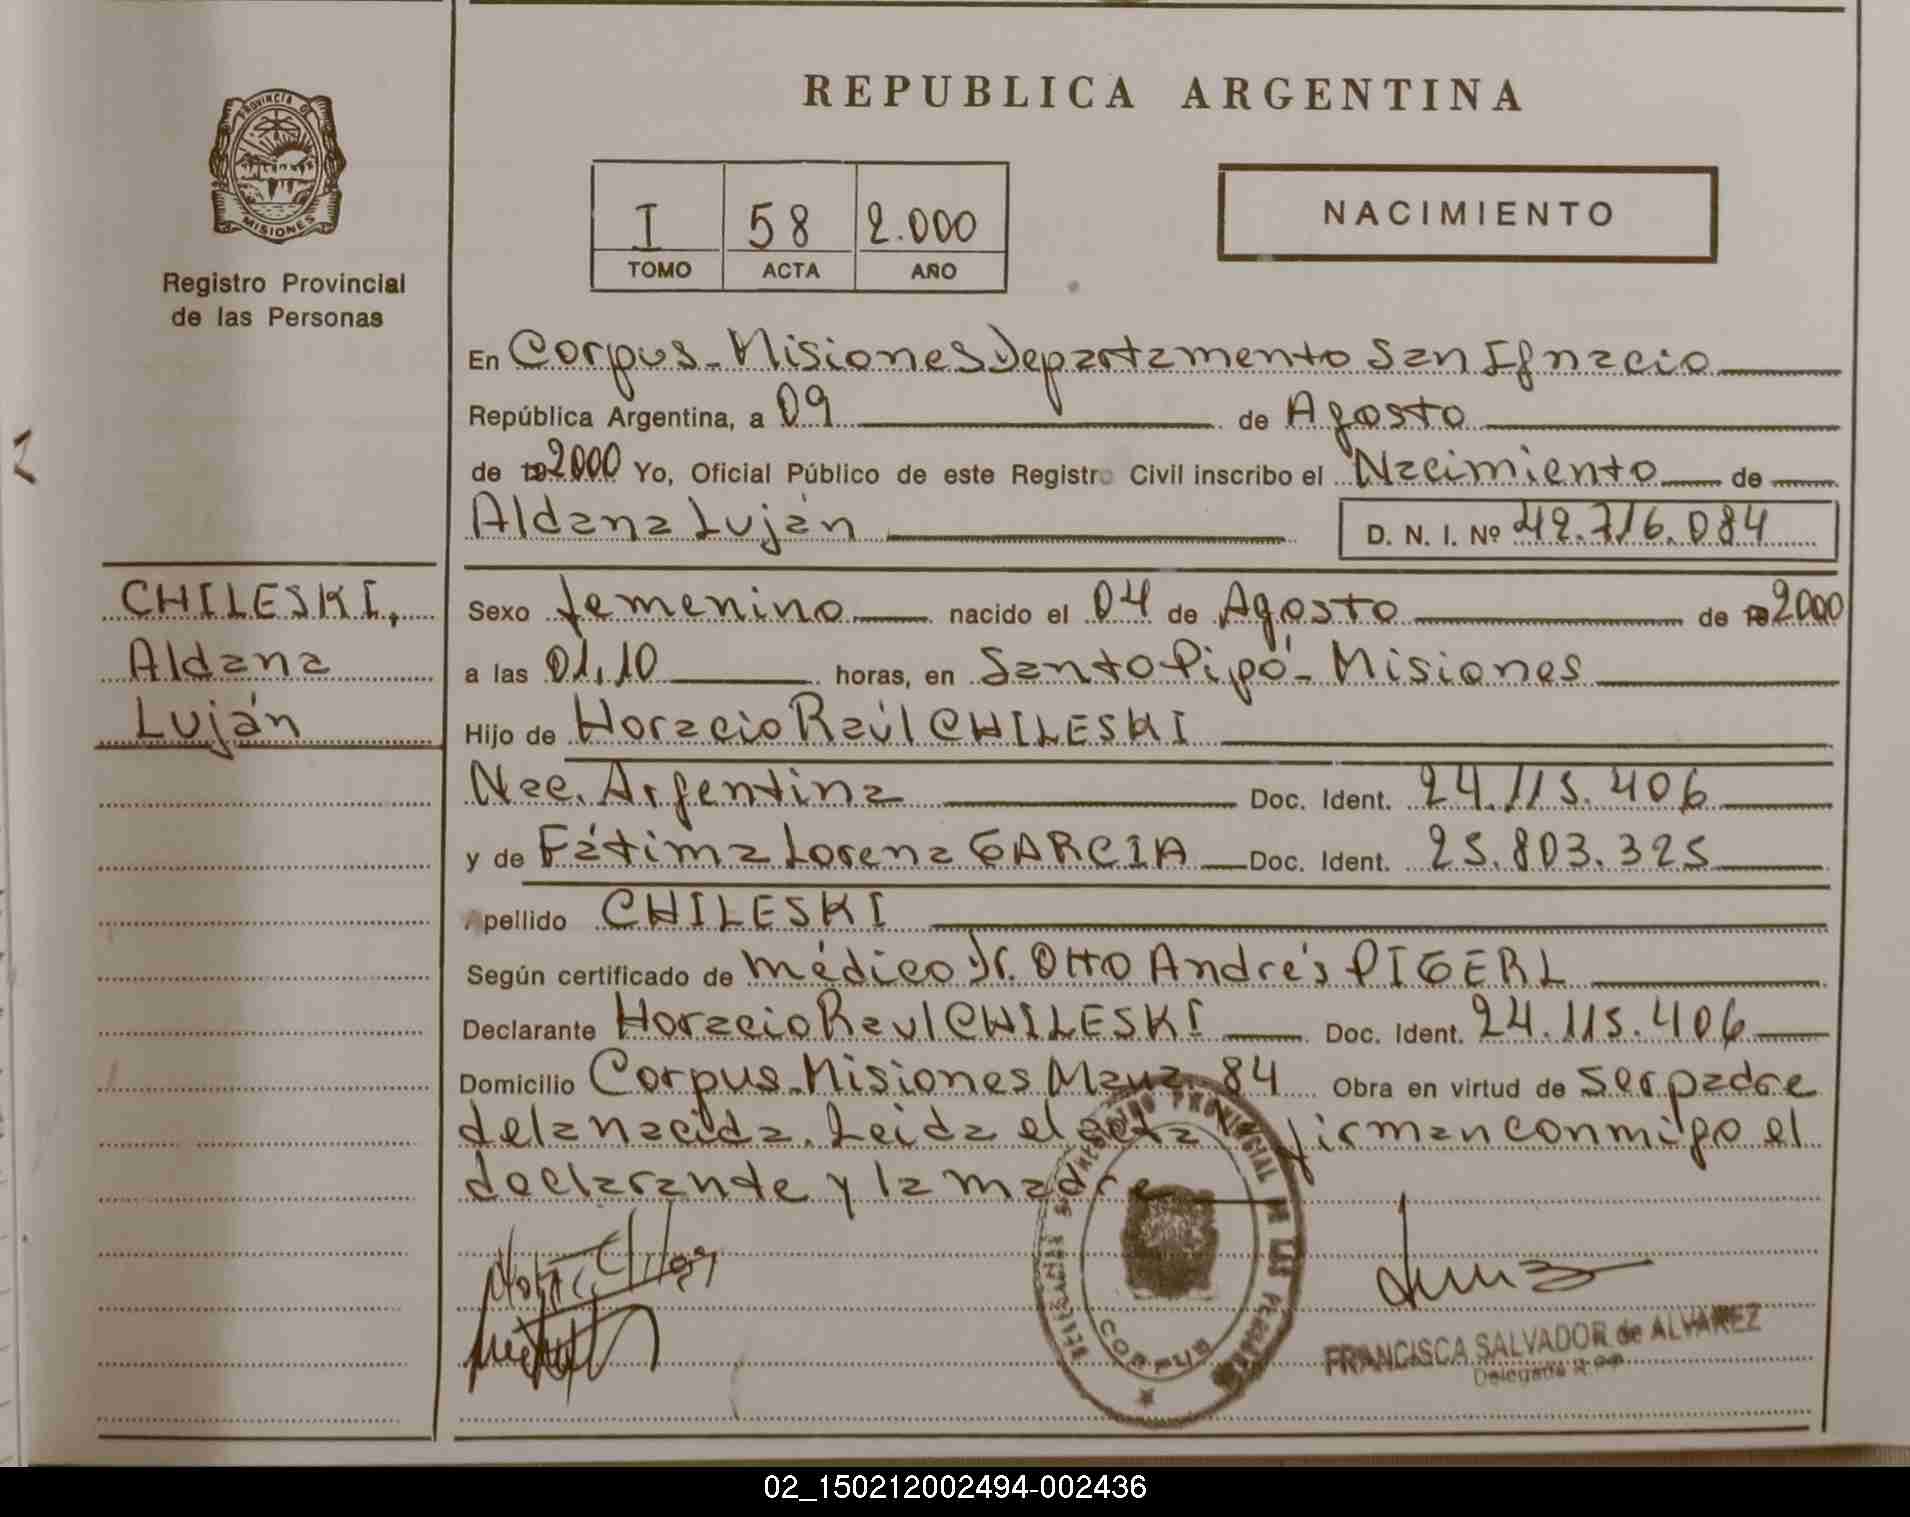 PROVINCIA DE
MISIONES
Registro Provincial
de las Personas
CHILESKI,
Aldana
Luján
REPUBLICA ARGENTINA
I 58 2.000
TOMO ACTA AÑO
NACIMIENTO
En Corpus - Misiones Departamento San Ignacio
República Argentina, a 09 de Agosto
de 19 2000 Yo, Oficial Público de este Registro Civil inscribo el Nacimiento de
Aldana Luján D. N. I. Nº 42.716.084
Sexo femenino nacido el 04 de Agosto de 19 2000
a las 01,10 horas, en Santo Pipó - Misiones
Hijo de Horacio Raúl CHILESKI
Nac. Argentina Doc. Ident. 24.115.406
y de Fátima Lorena GARCIA Doc. Ident. 25.803.325
Apellido CHILESKI
Según certificado de médico Dr. Otto Andrés PIGERL
Declarante Horacio Raul CHILESKI Doc. Ident. 24.115.406
Domicilio Corpus - Misiones Manz. 84 Obra en virtud de ser padre
de la nacida. Leida el acta firman conmigo el
declarante y la madre
REGISTRO PROVINCIAL DE LAS PERSONAS
CORPUS
FRANCISCA SALVADOR de ALVAREZ
Delegada R.P.P.
02_150212002494-002436